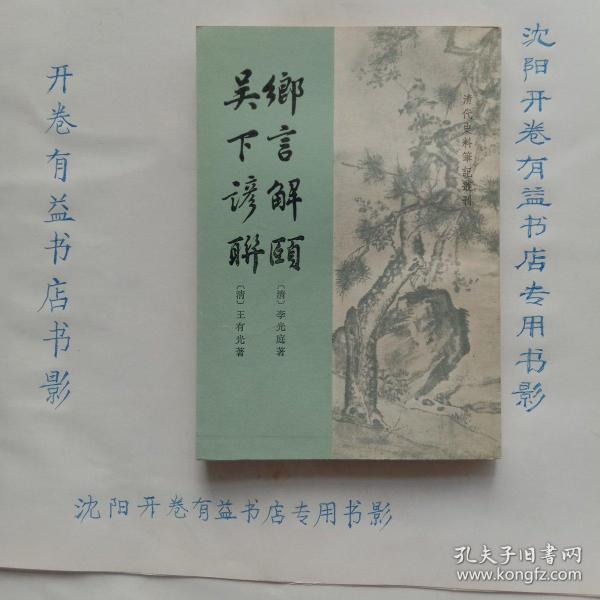 鄉言解頤
〔清〕李光庭著
吴下諺聯
〔清〕王有光著
清代史料筆記叢刊
开卷有益书店书影
沈阳开卷有益书店专用书影
沈阳开卷有益书店专用书影
孔夫子旧书网
www.kongfz.com